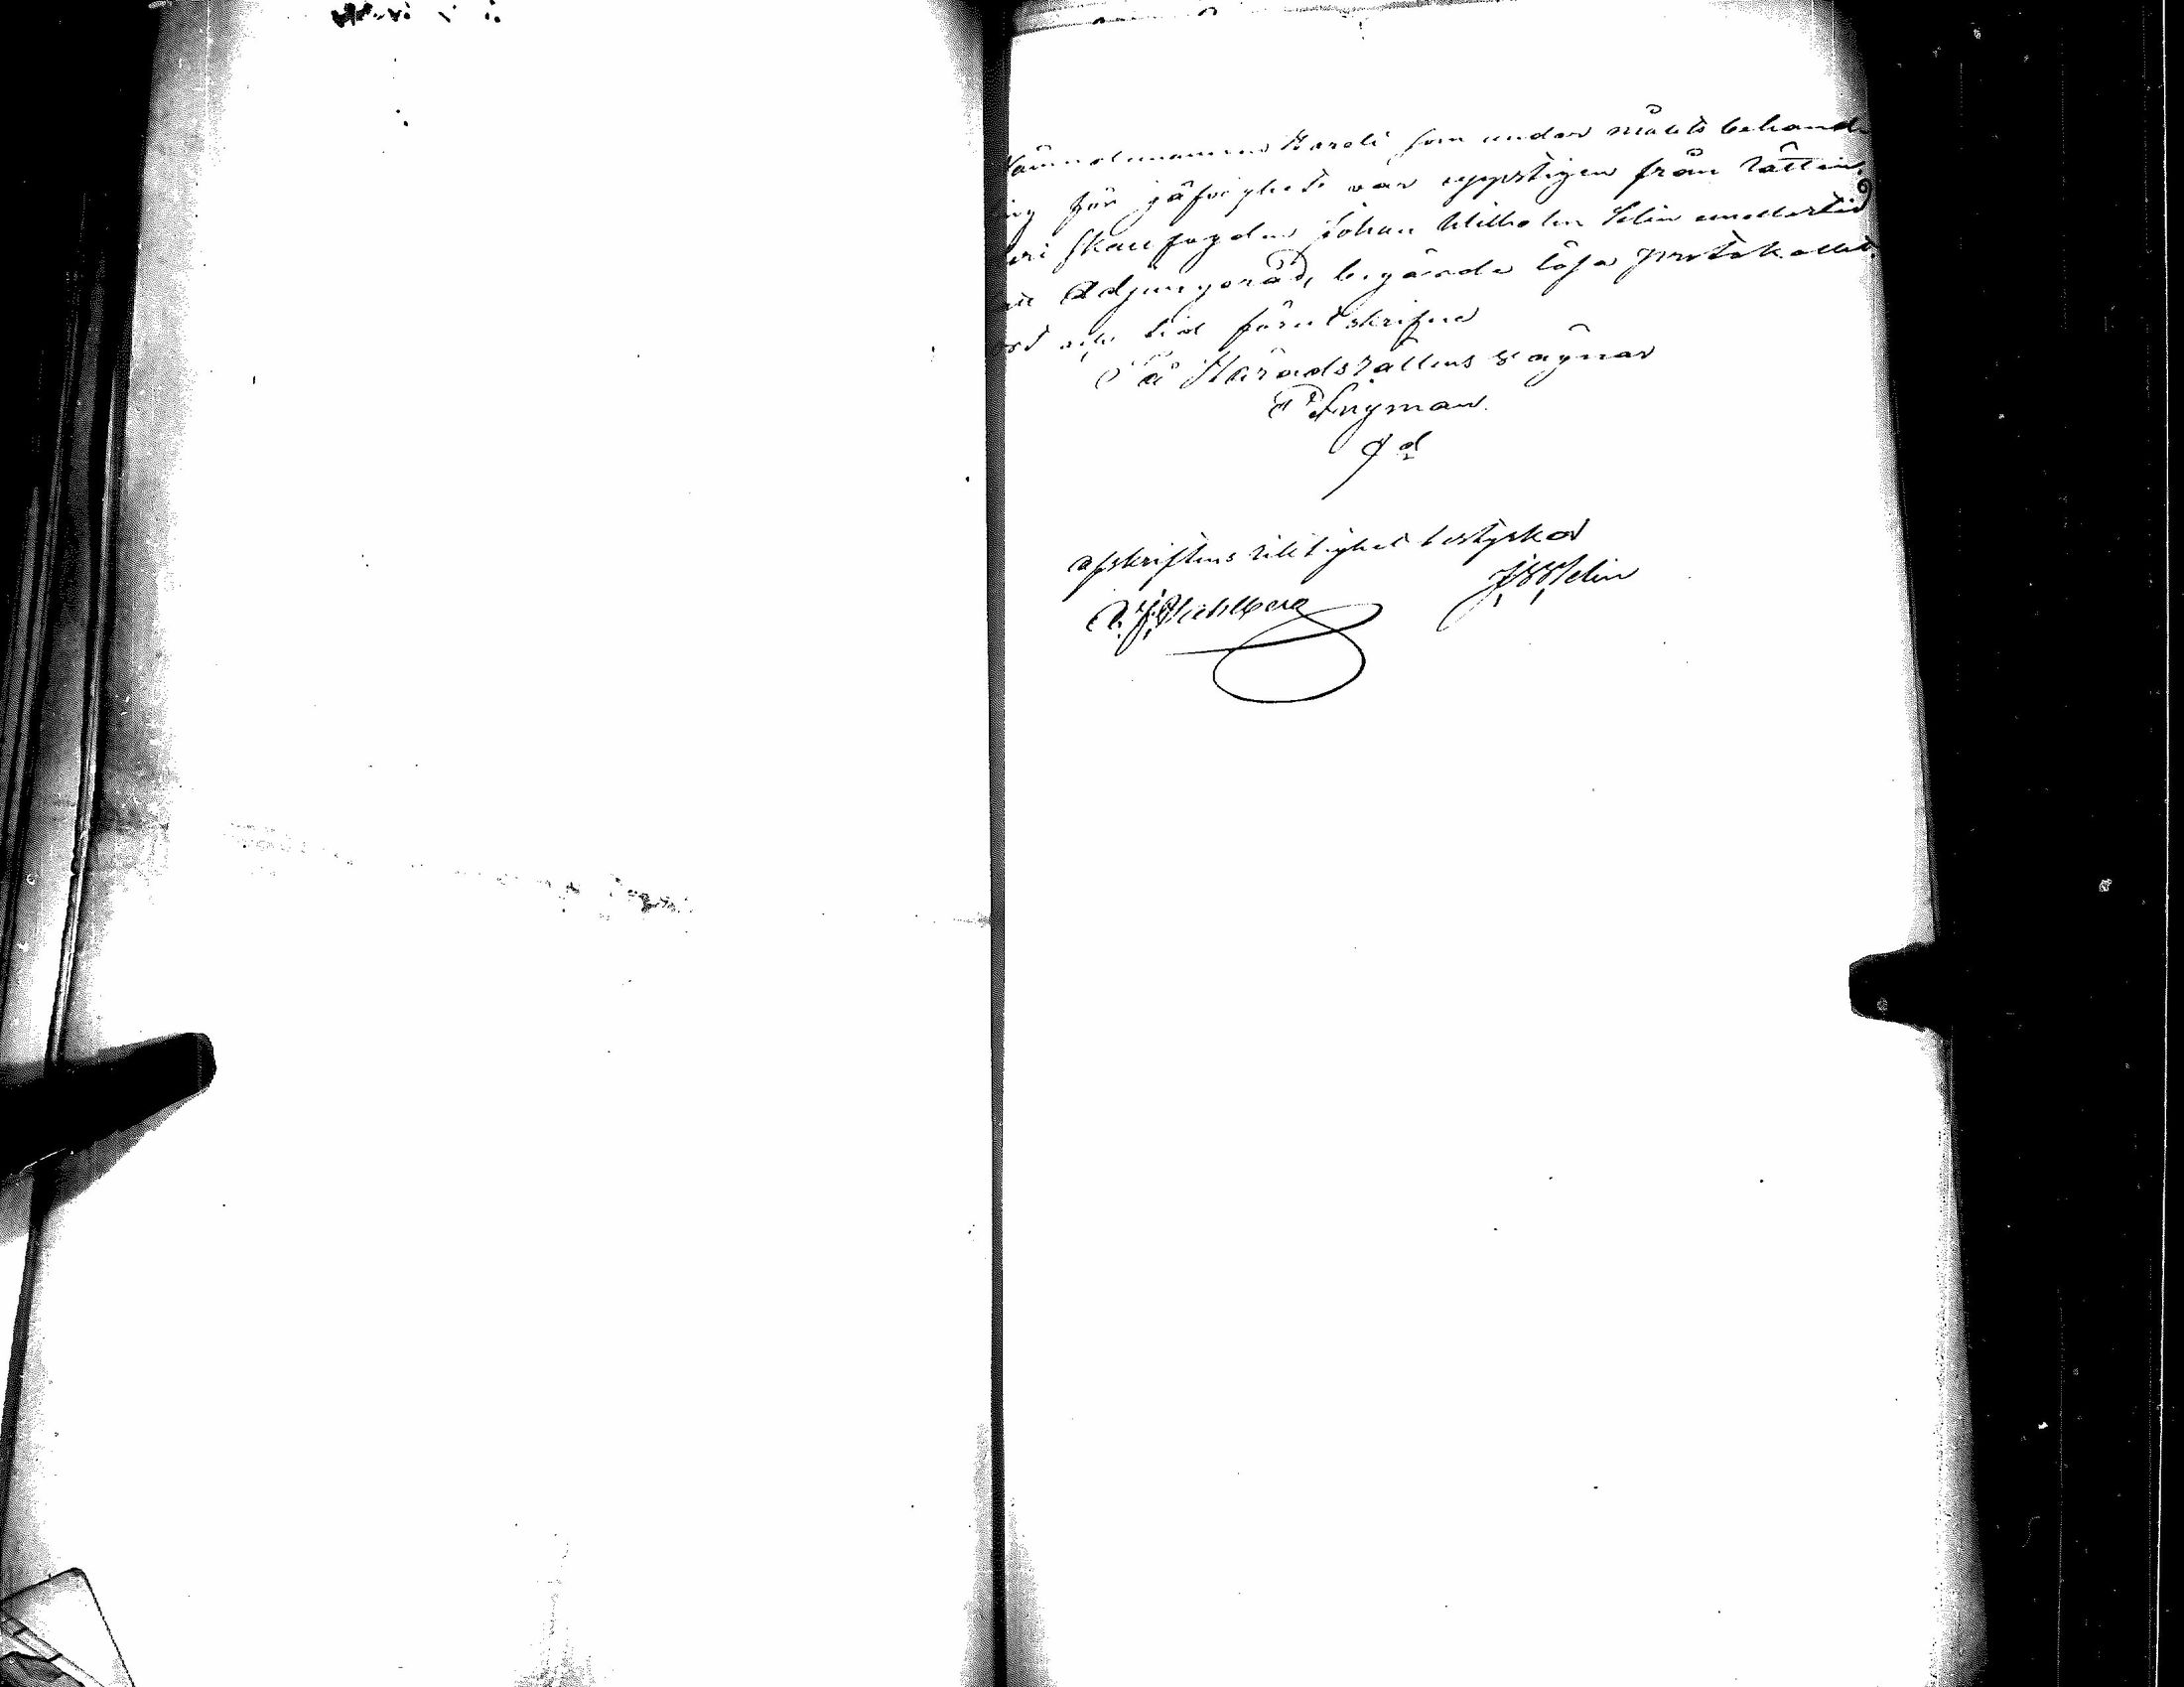 Nämndemannen Kareli som under målets behand
ing för jäfvighet var uppstigen från rätten,
eri Skaufogden Johan Wilhelm Selin emellertid
Adjungerad, begärde lösa protokollet.
tid förutskrifne
På Häradsrättens vägnar
Nyman.
afskriftens riktighet bestyrka
J W Selin